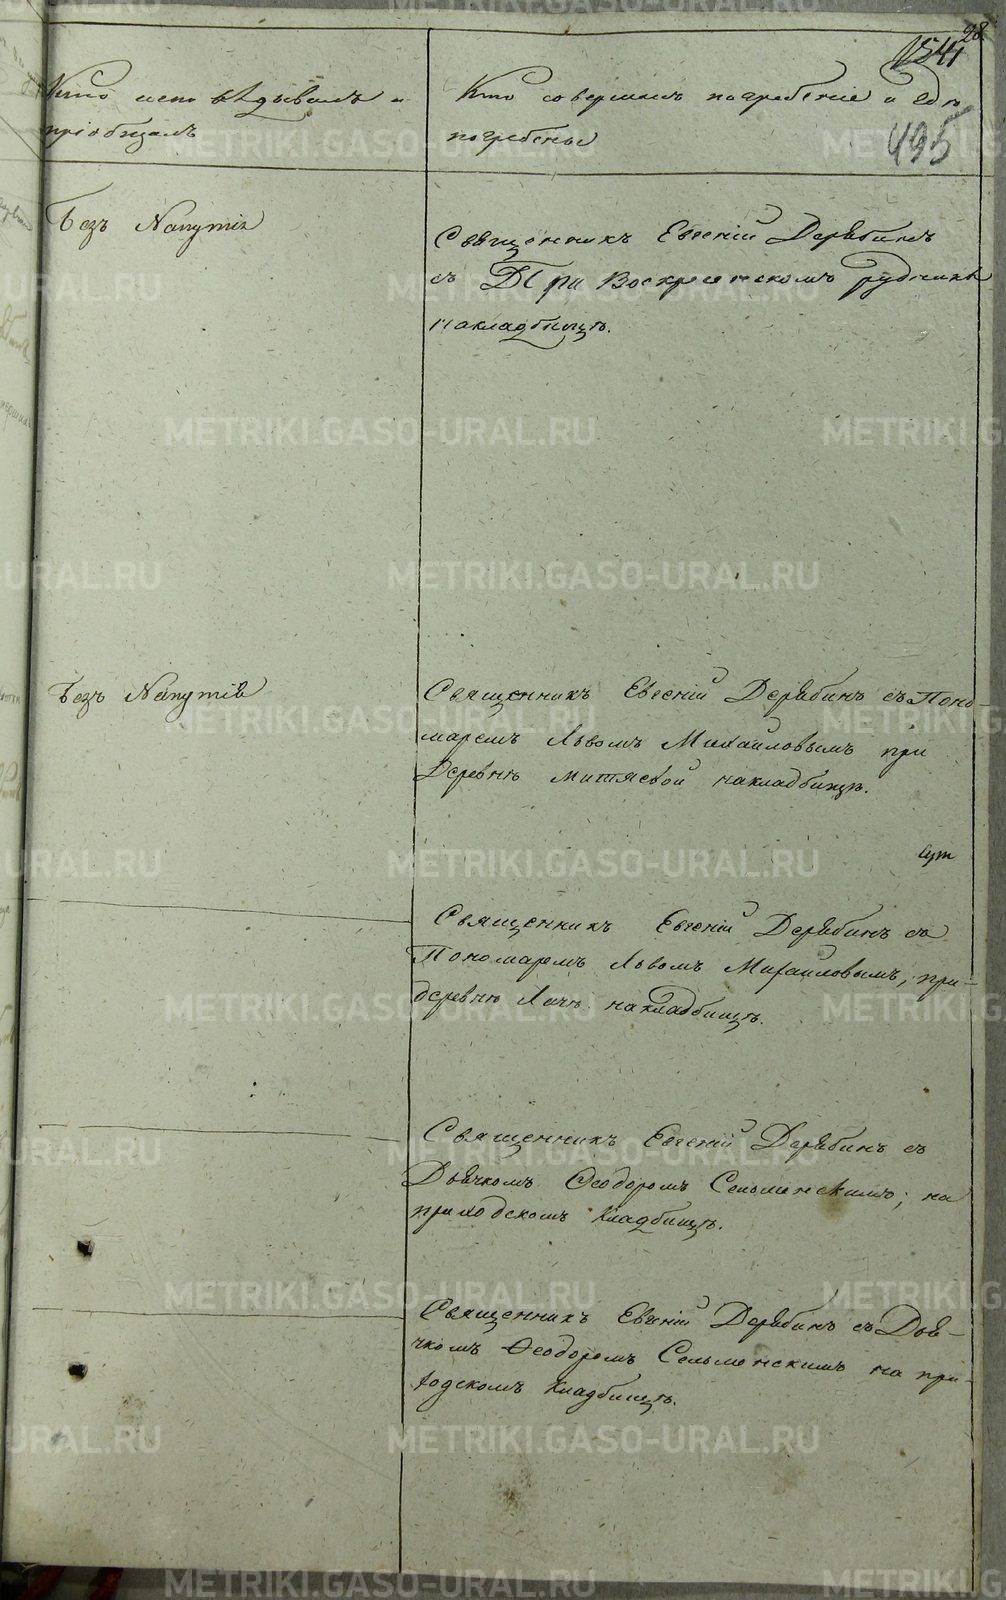 28
1541
495
Кто исповѣдывалъ и
пріобщалъ
Кто совершалъ погребеніе и гдѣ
погребены
Безъ Напутія
Священникъ Евгеній Дерябинъ
съ При Воскресенскомъ рудникѣ
на кладбищѣ.
Безъ Напутія
Священникъ Евгеній Дерябинъ съ Поно-
маремъ Львомъ Михайловымъ при
Деревнѣ Митяевой на кладбищѣ.
Священникъ Евгеній Дерябинъ съ
Пономаремъ Львомъ Михайловымъ, при-
деревнѣ на кладбищѣ.
Священникъ Евгеній Дерябинъ съ
Дьячкомъ Ѳеодоромъ Сельменскимъ; на
приходскомъ Кладбищѣ.
Священникъ Евгеній Дерябинъ съ Дья-
чкомъ Ѳеодоромъ Сельменскимъ на при-
ходскомъ Кладбищѣ.
METRIKI.GASO-URAL.RU